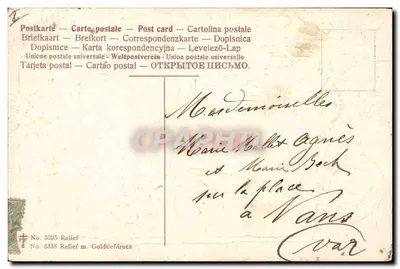 Postkarte – Carte postale – Post card – Cartolina postale
Briefkaart – Brefkort – Correspondenzkarte – Dopisnica
Dopisnice – Karta korespondencyjna – Levelező-Lap
Union postale universelle – Weltpostverein – Union postale universelle
Tarjeta postal – Cartão postal – ОТКРЫТОЕ ПИСЬМО.
Mesdemoiselles
Marie Agnès
et Marie
sur la place
à Vans
Var
No. 5235 Relief
No. 5335 Relief m. Golddefdruck